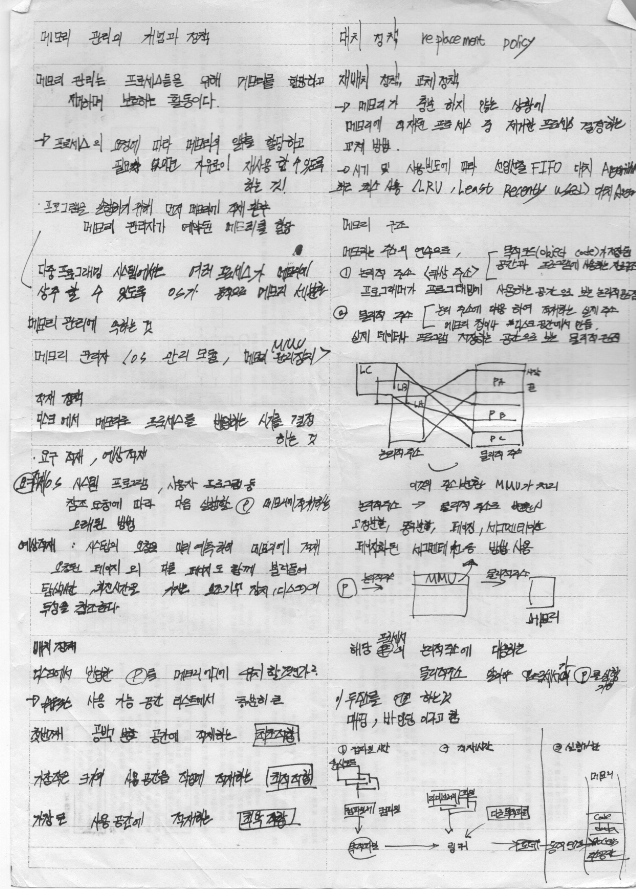 메모리 관리의 개념과 정책
메모리 관리는 프로세스들을 위해 메모리를 할당하고
제거하며 보호하는 활동이다.
→ 프로세스의 요청에 따라 메모리의 일부를 할당하고
필요 없으면 자유로이 재사용 할 수 있도록
하는 것!
· 프로그램을 실행하기 위해 먼저 메모리에 적재
메모리 관리자가 예약된 메모리를 할당
다중 프로그래밍 시스템에서는 여러 프로세스가 메모리에
상주 할 수 있도록 OS가 동적으로 메모리 세분화
메모리 관리에 속하는 것
메모리 관리자 (OS 관리 모듈, 메모리 관리장치>
MMU
적재 정책
디스크에서 메모리로 프로세스를 반입하는 시기를 결정
하는 것
· 요구 적재, 예상적재
요구적재 OS 시스템 프로그램, 사용자 프로그램 등
참조 요청에 따라 다음 실행할 P 메모리에 적재하는
오래된 방법
예상적재 : 시스템의 요청을 미리 예측하여 메모리에 적재
요청된 페이지 외의 다른 페이지도 함께 불러들여
탐색시간, 회전시간을 가지는 보조기억 장치(디스크)의
특성을 참조한다
배치 정책
디스크에서 반입한 P를 메모리 어디에 배치 할 것인가?
→ 사용 가능 공간 리스트에서
첫번째 공백 분할 공간에 적재하는 최초적합
가장작은 크기의 사용공간을 작업에 적재하는 최적적합
가장 큰 사용공간에 적재하는 최악 적합
대치 정책 replacement policy
재배치 정책, 교체 정책
→ 메모리가 충분 하지 않은 상황에
메모리에 적재된 프로세스 중 제거할 프로세스 결정하는
교체 방법.
→ 시기 및 사용빈도에 따라 선입선출 FIFO 대치
최근 최소 사용 (LRU, Least Recently used) 대치
메모리 구조
메모리는 주소의 연속으로, 목적코드(object code)가 저장된
공간과 프로그램에
① 논리적 주소 <가상 주소>
프로그래머가 프로그래밍에 사용하는 공간으로 보는 논리적 관점
② 물리적 주소 논리 주소에 대응 하여 적재하는 실제 주소
메모리 칩이나 디스크 공간에서 만듦.
실제 데이터나 프로그램 저장하는 공간으로 보는 물리적 관점
LC
LB
LA
PA
PB
PC
논리적 주소
물리적 주소
이것의 주소변환 MMU가 처리
논리적주소 → 물리적 주소로 변환시
고정분할, 동적분할, 페이징, 세그먼테이션
페이징화된 세그먼테이션 등 방법 사용
P
논리적주소
MMU
물리적주소
메모리
해당 프로세서의 논리적 주소에 대응하는
물리적주소
P
이 두 주소를 연결 하는 것
매핑, 바인딩 이라고 함
① 컴파일 시간
② 적재시간
③ 실행시간
메모리
링커
code
data